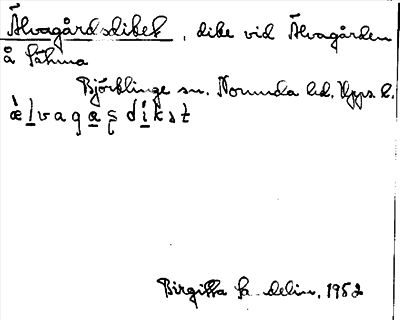 Älvagårdsdiket, dike vid Älvagården
å Sähma
Björklinge sn. Norunda hd. Upps. l.
Birgitta delin, 1952